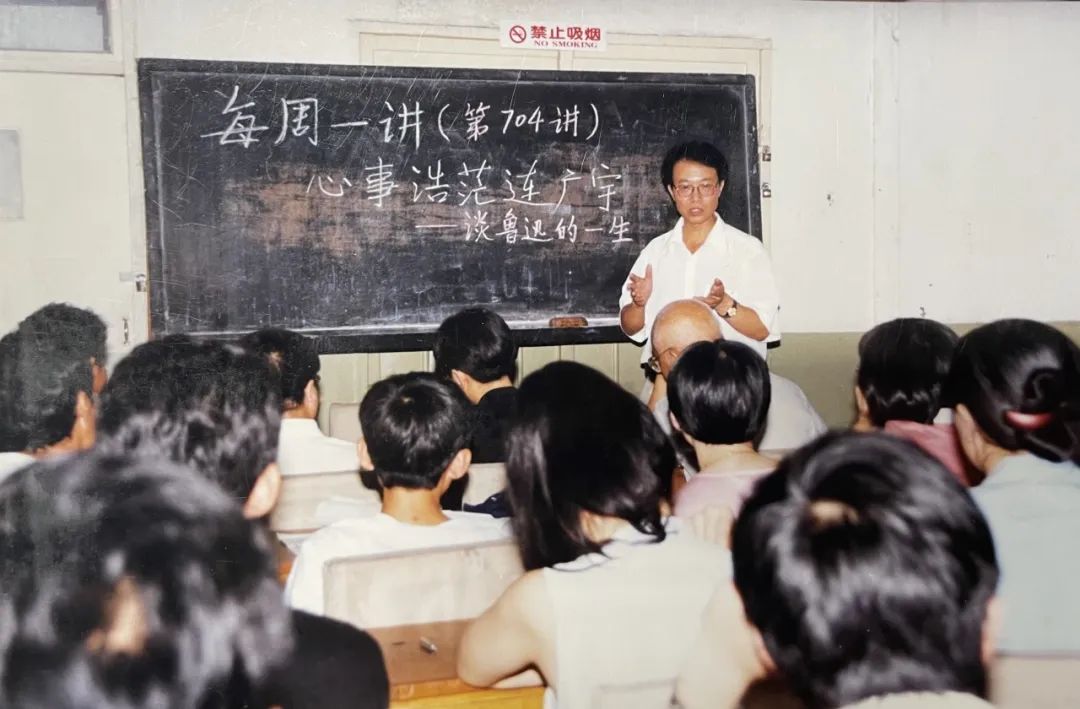 禁止吸烟
NO SMOKING
每周一讲(第704讲)
心事浩茫连广宇
—谈鲁迅的一生